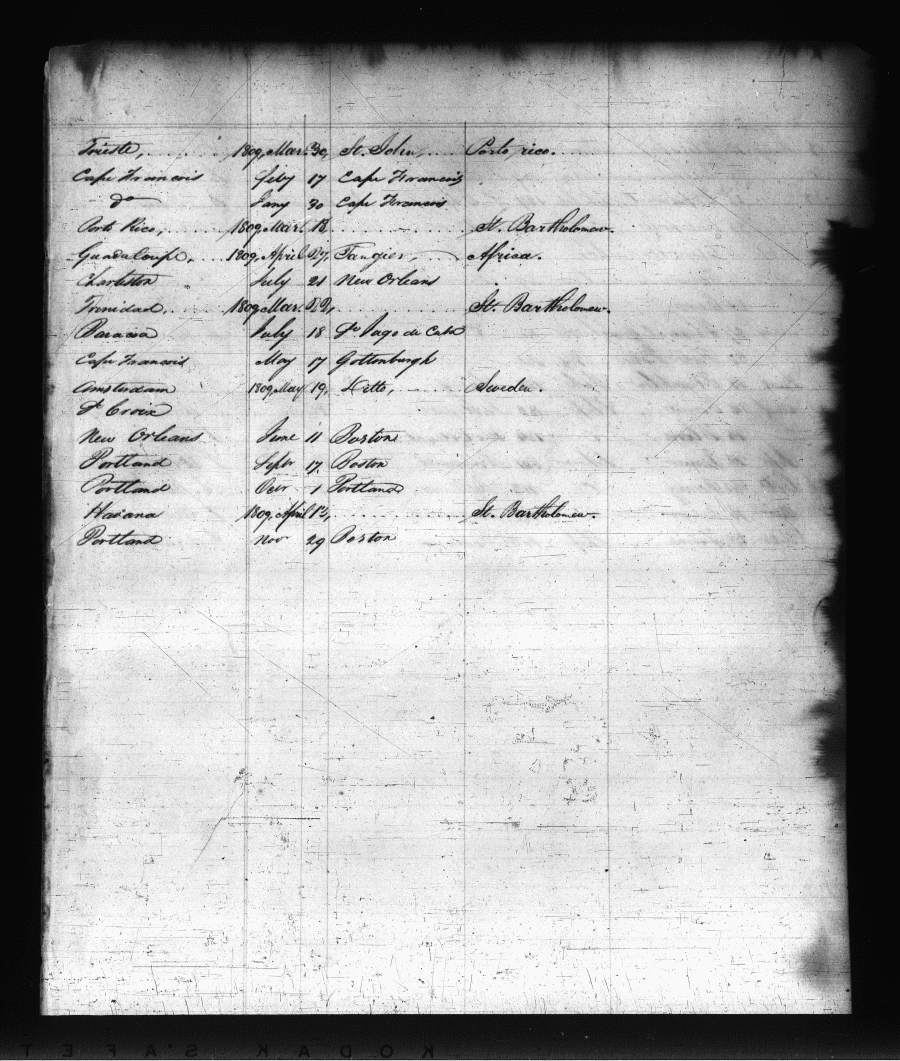 Trieste, 1809, Mar. 30, St. John, Porto rico.
Cape Francois Feby 17 Cape Francois
do Jany 30 Cape Francois
Porto Rico, 1809, Mar. 18. St. Bartholomew.
Guadaloupe, 1809, April 27, Tangier, Africa.
Charleston July 21 New Orleans
Trinidad, 1809, Mar. 22, St. Bartholomew.
July 18 St Jago de Cuba
Cape Francois May 17 Gottenburgh
Amsterdam 1809, May 19, Ditto, Sweden.
St Croix
New Orleans June 11 Boston
Portland Septr 17 Boston
Portland Decr 1 Portland
Havana 1809, April 12, St. Bartholomew.
Portland Nov 29 Boston
KODAK SAFET